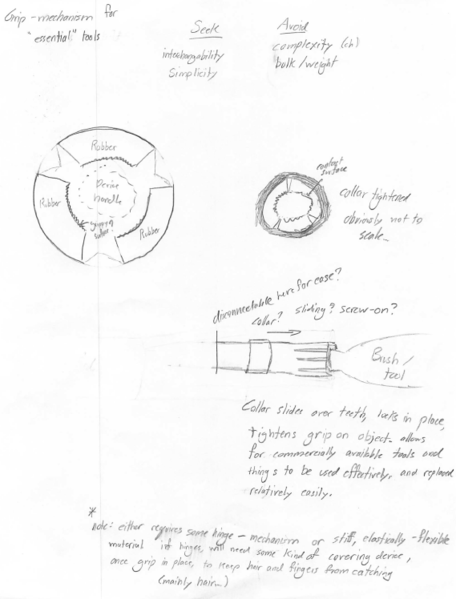 Grip-mechanism for
"essential" tools
Seek
interchangability
simplicity
Avoid
complexity (ish)
bulk/weight
Rubber
Device
handle
Rubber
gripping
Rubber
surface
collar tightened
obviously not to
scale
disconnectable here for ease?
collar? sliding? screw-on?
Brush/
tool
Collar slides over teeth, locks in place,
tightens grip on object. allows
for commercially available tools and
things to be used effectively, and replaced
relatively easily.
*
note: either requires some hinge-mechanism or stiff, elastically-flexible
material. if hinges, will need some kind of covering device,
once grip in place, to keep hair and fingers from catching
(mainly hair...)